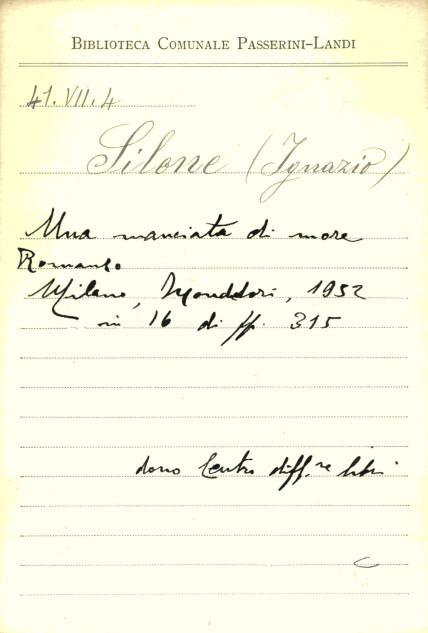 BIBLIOTECA COMUNALE PASSERINI-LANDI
41.VII.4
Silone (Ignazio)
Una manciata di more
Romanzo
Milano, Mondadori, 1952
in 16 di pp. 315
dono Centro diff.ne libri
C